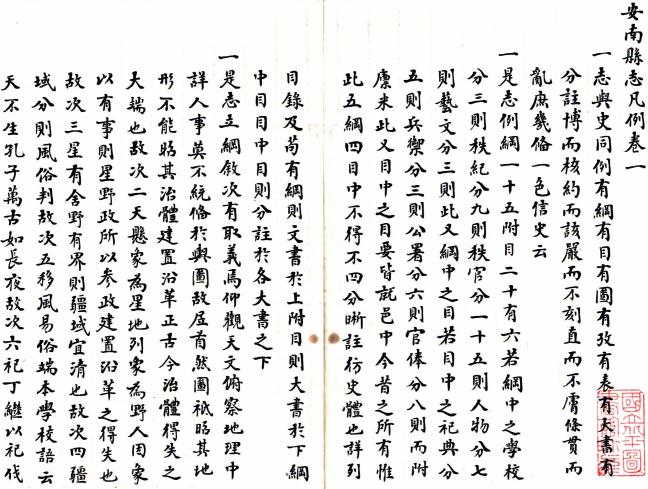 安南縣志凡例卷一
一志與史同例有綱有目有圖有攷有表有大書有
分註博而核約而該嚴而不刻直而不膚條貫而不
亂庶幾俻一色信史云
一是志例綱一十五附目二十有六若綱中之學校
分三則秩紀分九則秩官分一十五則人物分七
則藝文分三則此又綱中之目若目中之祀典分
五則兵禦分三則公署分六則官俸分八則而附
廩末此又目中之目要皆就邑中今昔之所有惟
此五綱四目中不得不四分晰註彷史體也詳列
目錄及苟有綱則文書於上附目則大書於下綱
中目目中目則分註於各大書之下
一是志立綱敘次有取義焉仰觀天文俯察地理中
詳人事莫不統俻於輿圖故居首然圖祇昭其地
形不能昭其治體建置沿革正古今治體得失之
大端也故次二天懸象為星地列象為野人因象
以有事則星野政所以參政建置沿革之得失也
故次三星有舍野有界則疆域宜清也故次四疆
域分則風俗判故次五移風易俗端本學校語云
天不生孔子萬古如長夜故次六祀丁繼以祀伐